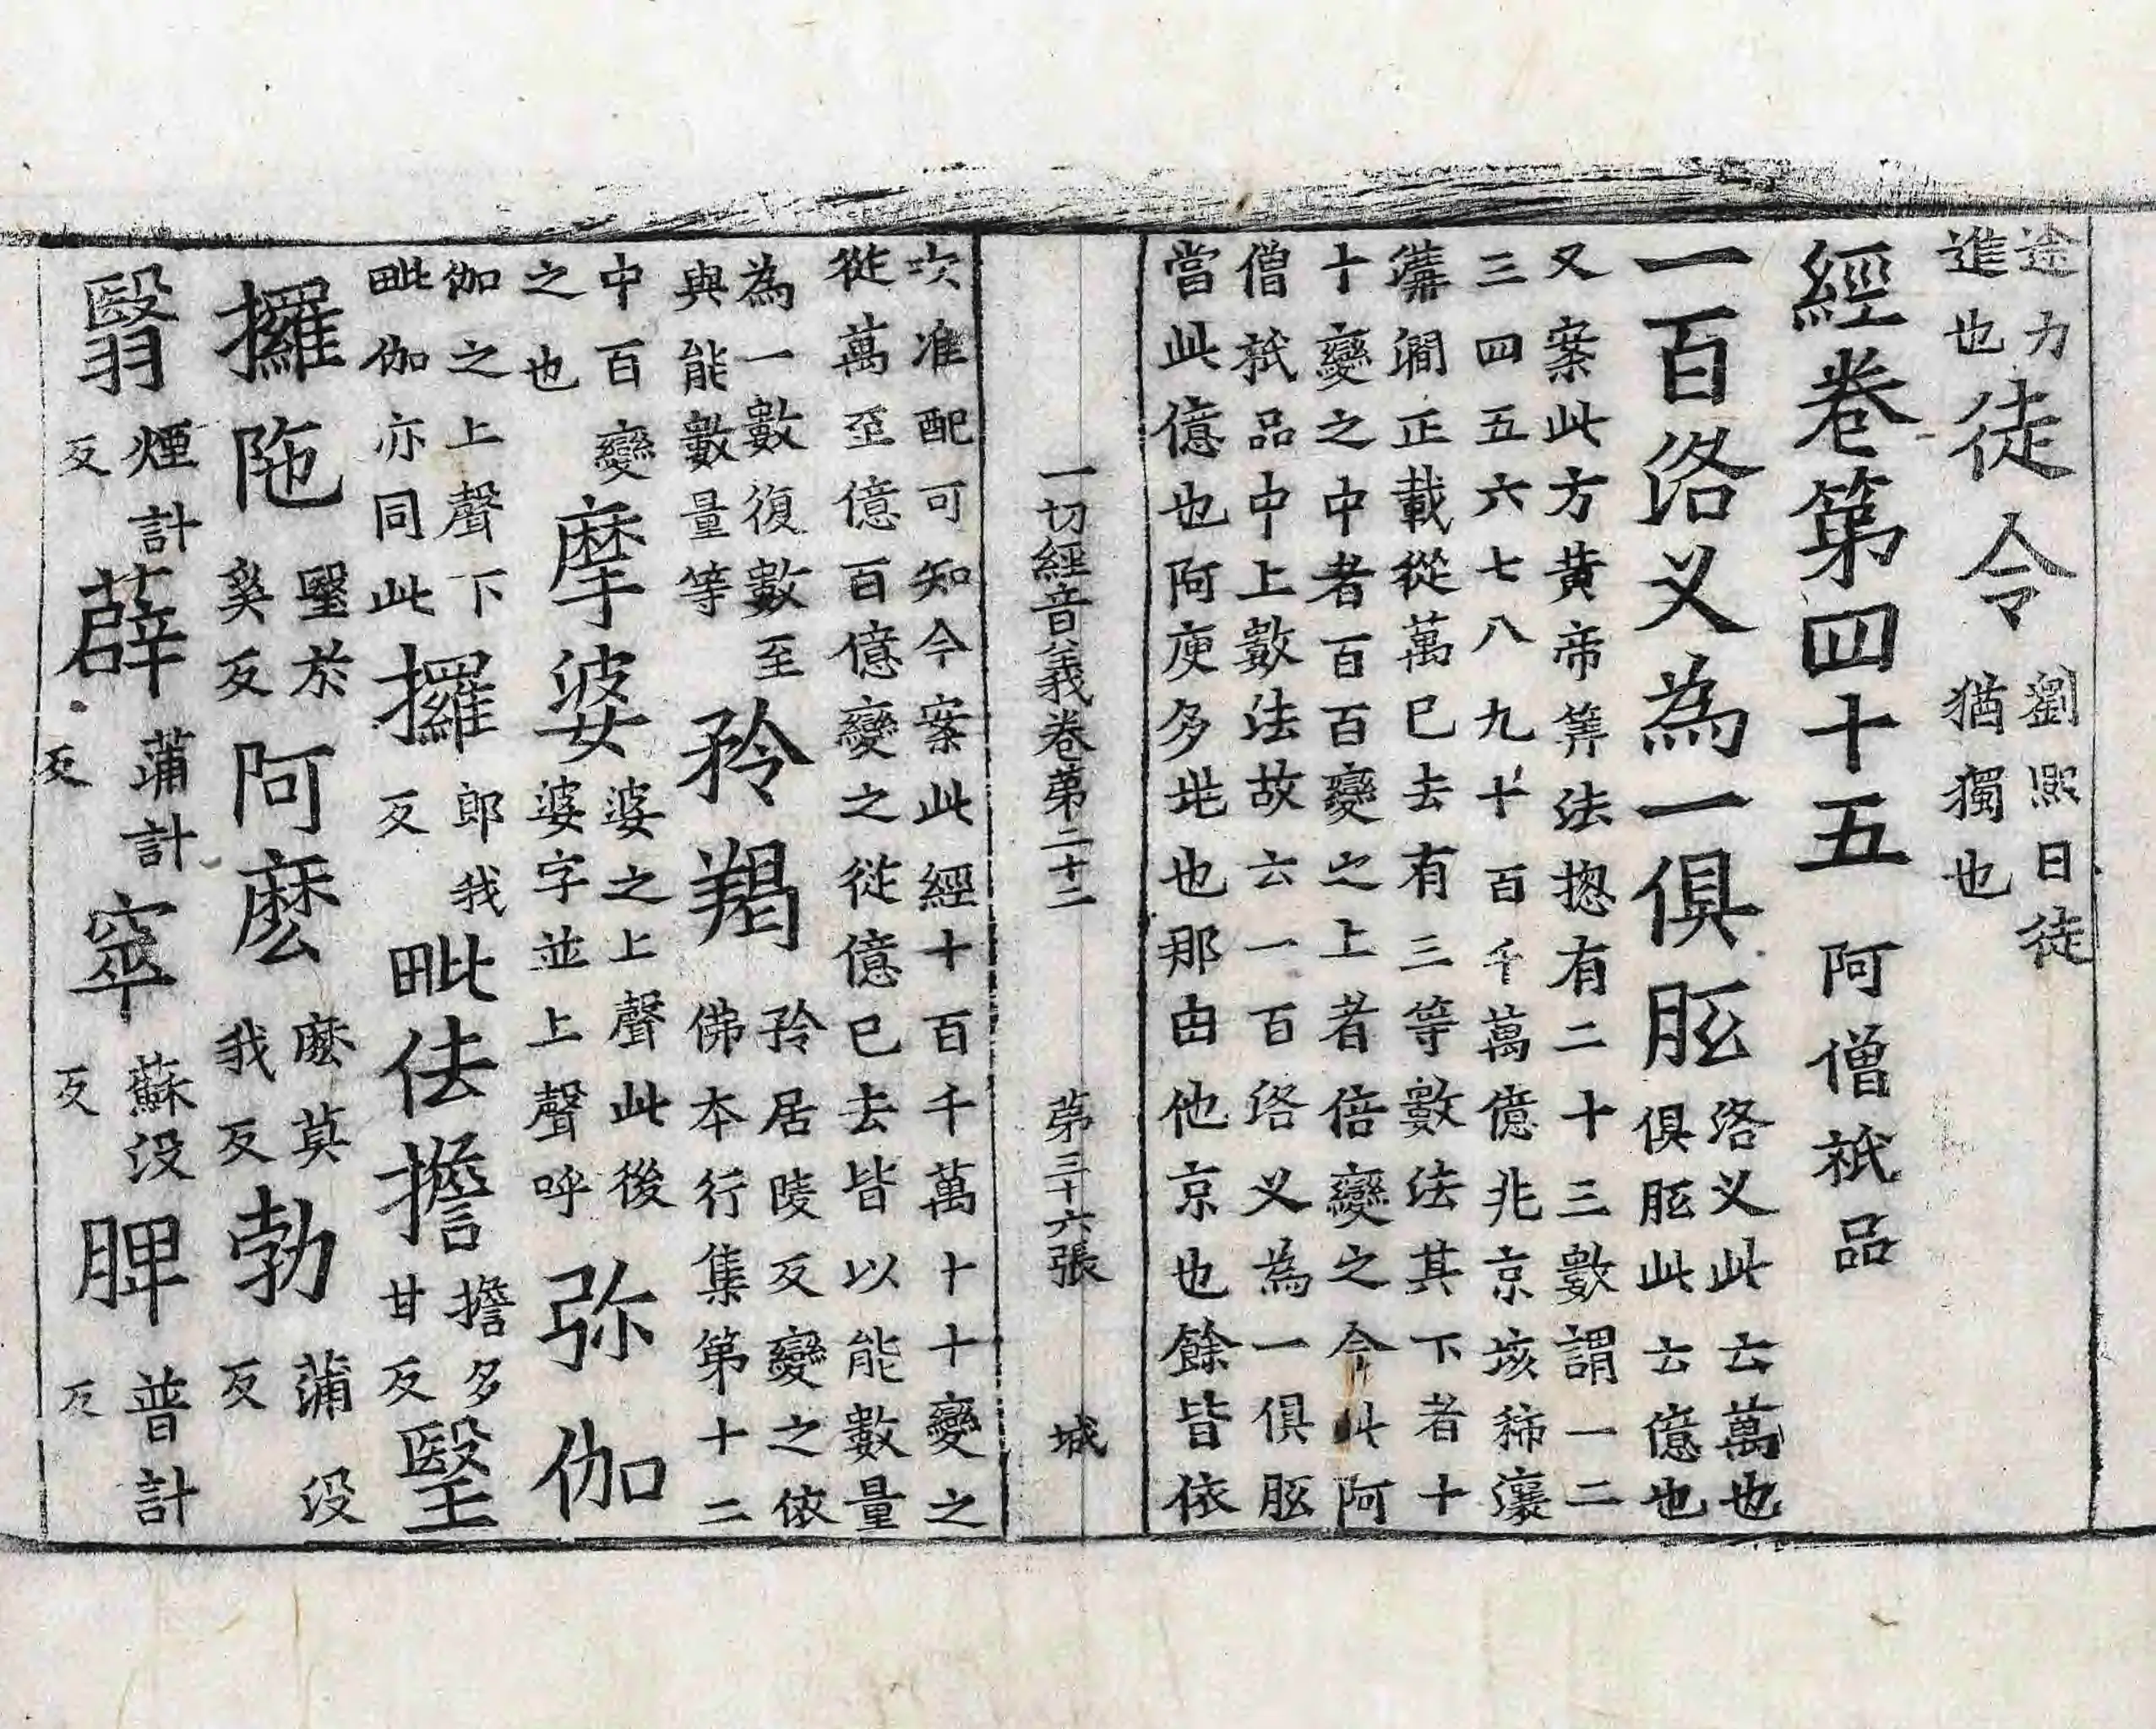 途力
進也
徒令
劉熙曰徒
猶獨也
經卷第四十五 阿僧祇品
一百洛叉為一俱胝
洛叉此云萬也
俱胝此云億也
又案此方黃帝筭法揔有二十三數謂一二
三四五六七八九十百千萬億兆京垓秭瓖
溝澗正載從萬已去有三等數法其下者十
十變之中者百百變之上者倍變之今此阿
僧祇品中上數法故云一百洛叉為一俱胝
當此億也阿庾多垗也那由他京也餘皆依
一切經音義卷第二十二 第三十六張 城
次准配可知今案此經十百千萬十十變之
從萬至億百億變之從億已去皆以能數量
為一數復數至
與能數量等
矜羯
矜居陵反變之依
佛本行集第十二
中百變
之也
摩婆
婆之上聲此後
婆字並上聲呼
弥伽
伽之上聲下
毗伽亦同此
攞
郎我
反
毗佉擔
擔多
甘反
毉
攞陁
毉於
奚反
阿麼
麼莫
我反
勃
蒲沒
反
翳
煙計
反
薜
蒲計
反
窣
蘇沒
反
睥
普計
反